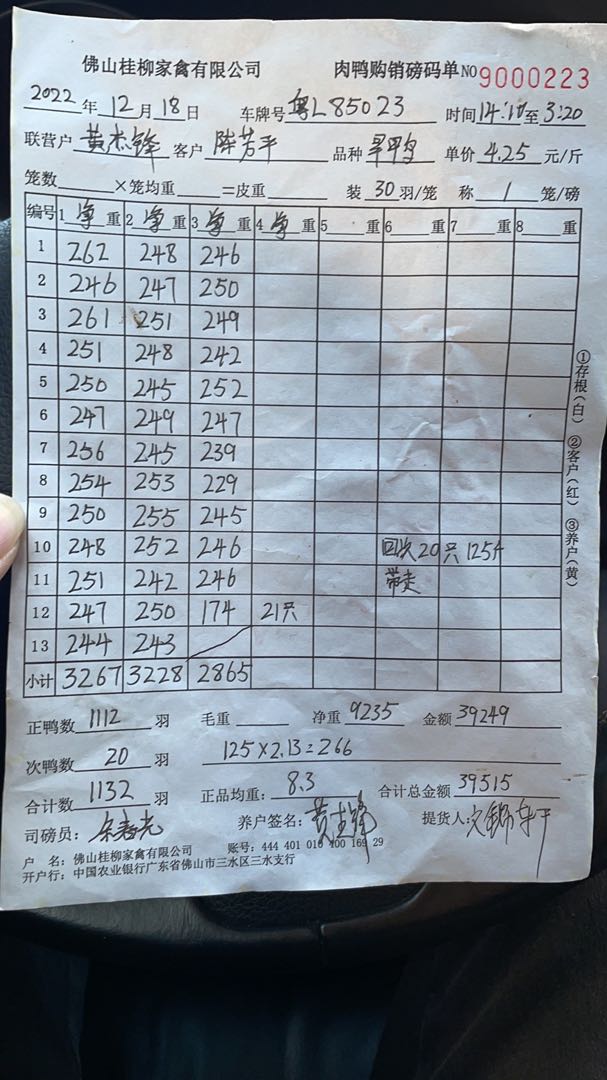 佛山桂柳家禽有限公司 肉鸭购销磅码单 NO 9000223
2022年12月18日 车牌号 粤L85023 时间14:10至3:20
联营户 黄杰锋 客户 陈芳平 品种 旱鸭 单价 4.25 元/斤
笼数 ×笼均重 =皮重 装 30 羽/笼 称 1 笼/磅
编号 1 净 重 2 净 重 3 净 重 4 净 重 5 重 6 重 7 重 8 重
1 262 248 246
2 246 247 250
3 261 251 249
4 251 248 242
5 250 245 252
6 247 249 247
7 256 245 239
8 254 253 229
9 250 255 245
10 248 252 246 回次20只125斤
11 251 242 246 带走
12 247 250 174 21只
13 244 243
小计 3267 3228 2865
①存根(白) ②客户(红) ③养户(黄)
正鸭数 1112 羽 毛重 净重 9235 金额 39249
次鸭数 20 羽 125×2.13=266
合计数 1132 羽 正品均重: 8.3 合计总金额 39515
司磅员: 养户签名: 提货人:
户 名: 佛山桂柳家禽有限公司 账号: 444 401 010 400 169 29
开户行: 中国农业银行广东省佛山市三水区三水支行